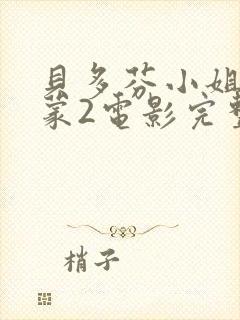 貝多芬小姐
蒙2電影完整
梢子